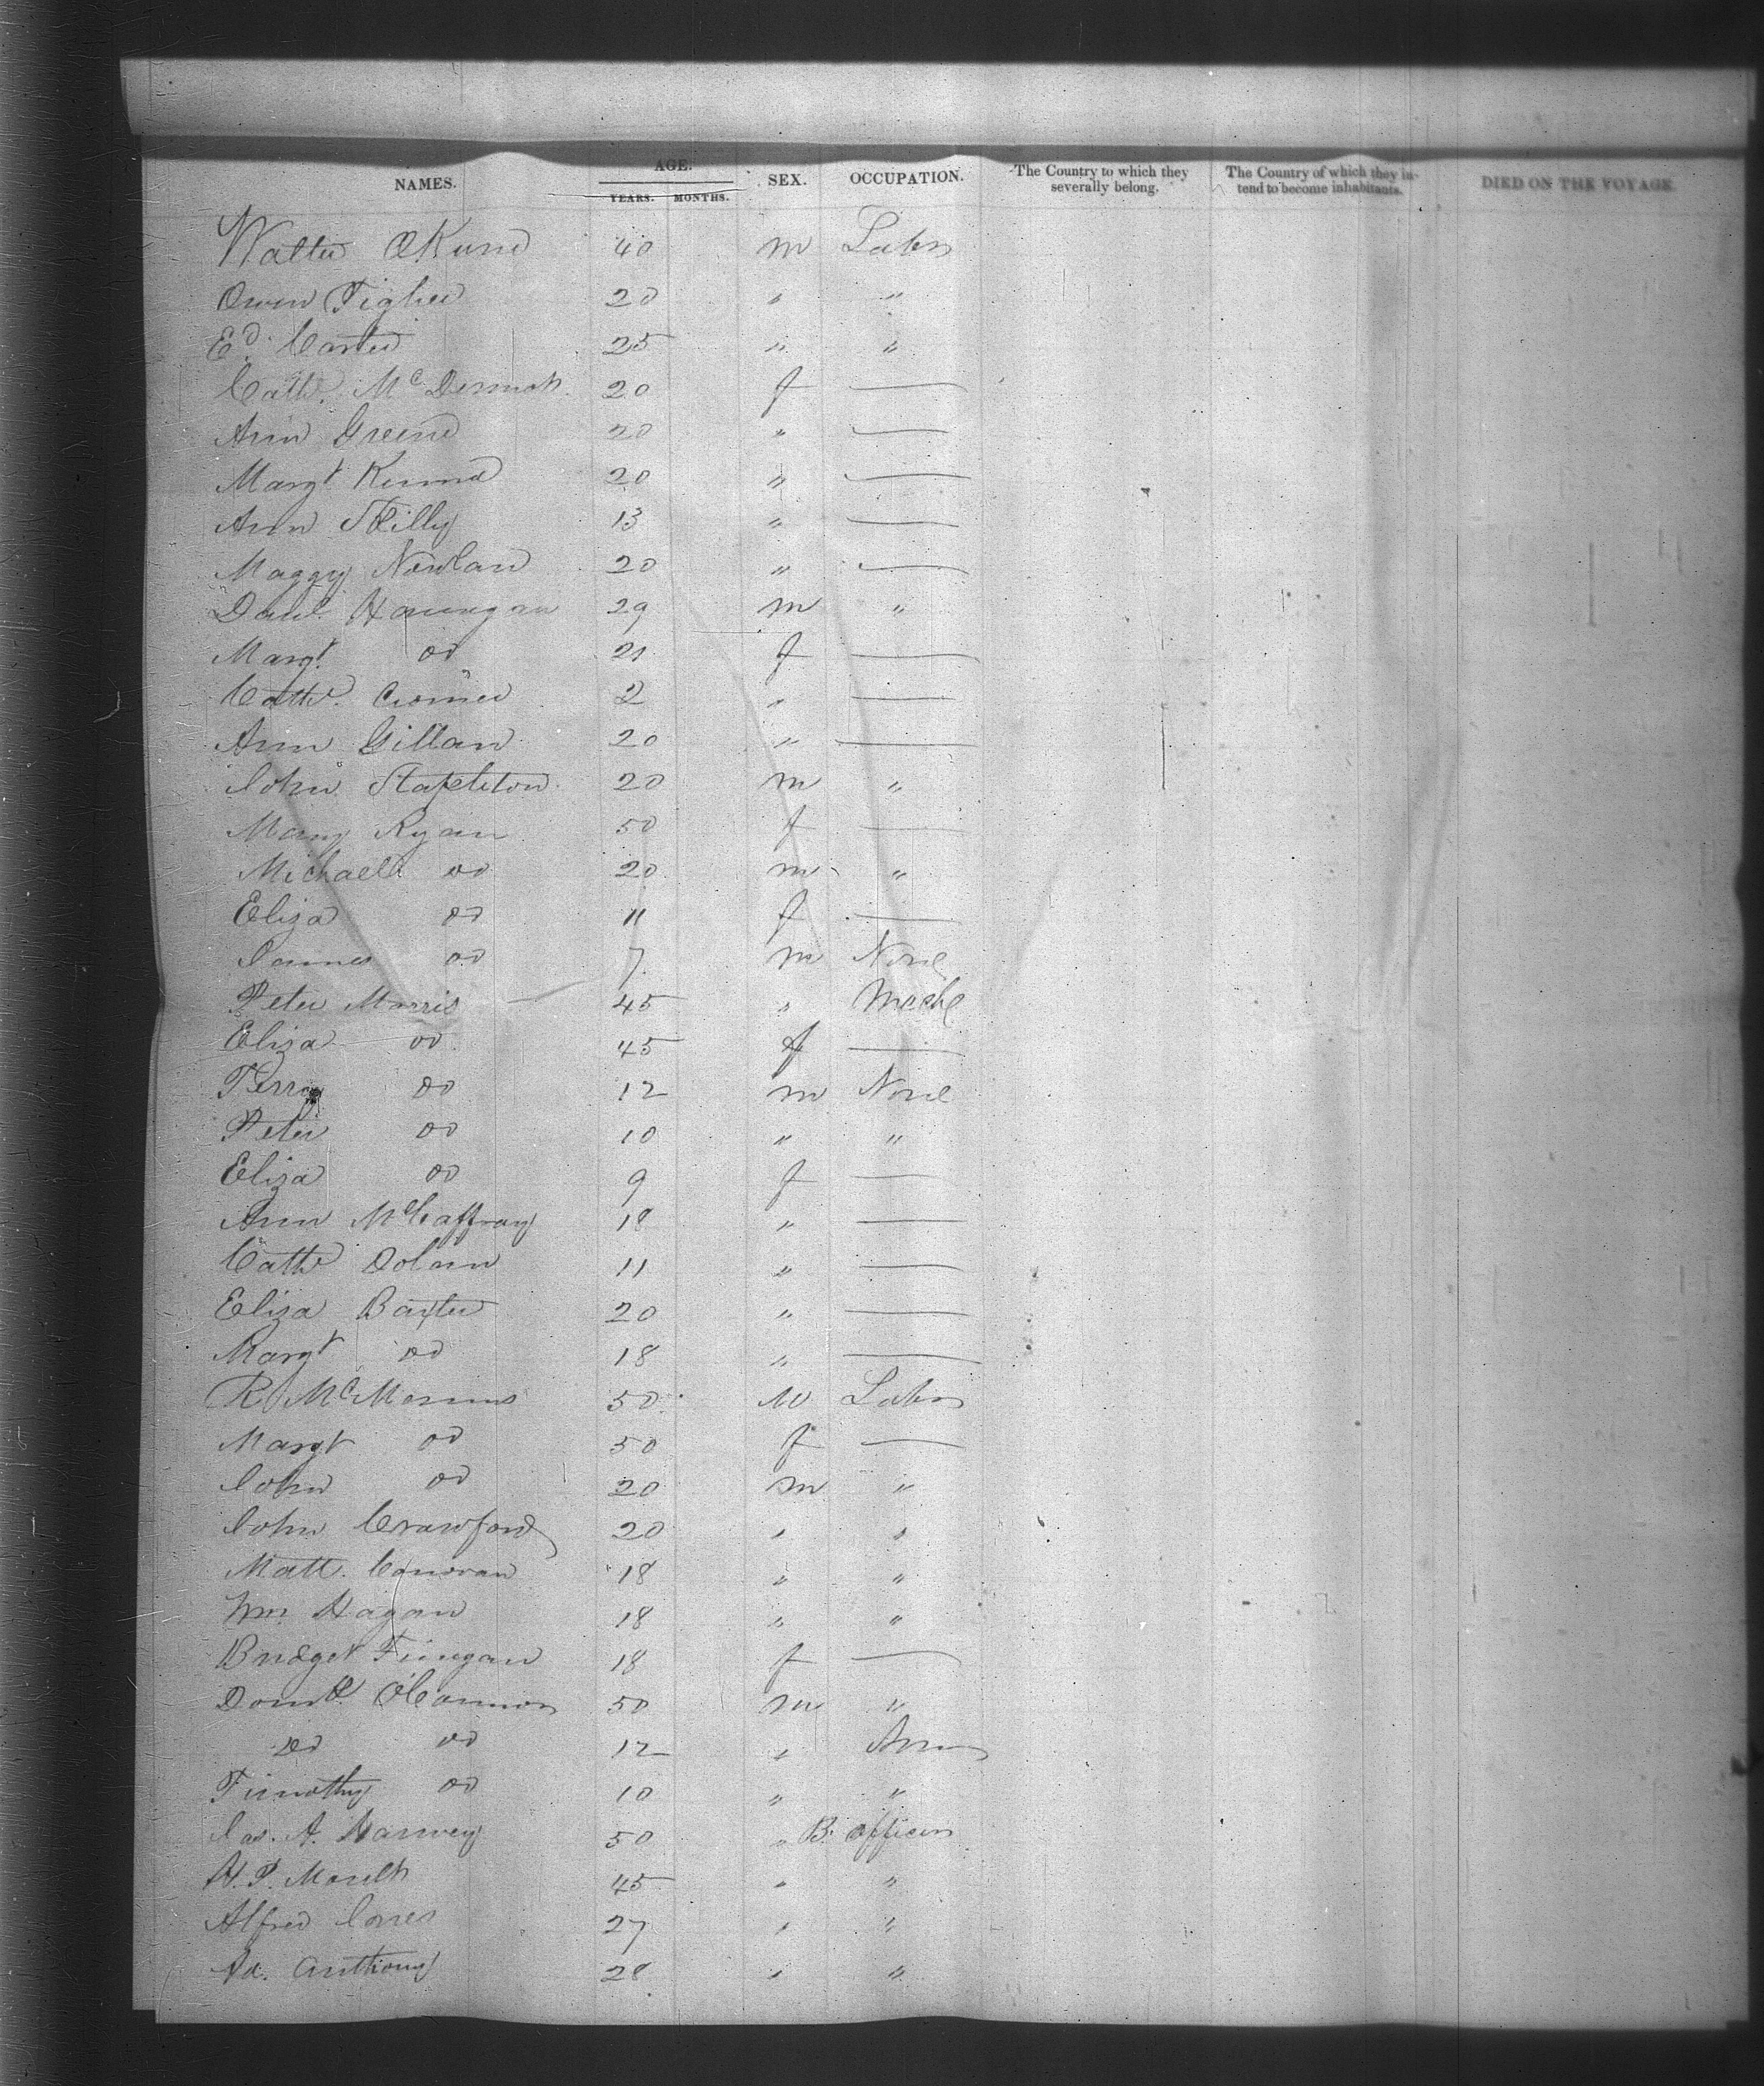 NAMES. AGE. SEX. OCCUPATION. The Country to which they severally belong. The Country of which they intend to become inhabitants. DIED ON THE VOYAGE.
YEARS. MONTHS.
Walter 40 m Labr
Owen Tighe 20 " "
Ed. Carter 25 " "
Cath. McDermott 20 f —
Ann Greene 20 " —
Margt 20 " —
Ann 13 " —
Maggy Nowlan 20 " —
Danl. 29 m "
Margt do 21 f —
Cathe. 2 " —
Ann Gillan 20 " —
John Stapleton 20 m "
Mary Ryan 50 f —
Michael do 20 m "
Eliza do 11 f —
James do 7 m None
Peter Morris 45 " Mech
Eliza do 45 f —
Perry do 12 m None
Peter do 10 " "
Eliza do 9 f —
Ann McCaffray 18 " —
Cathe Dolan 11 " —
Eliza Baxter 20 " —
Margt do 18 " —
R McManus 50 M Labr
Margt do 50 f —
John do 20 m "
John Crawford 20 " "
Matt. Conovan 18 " "
Wm. Hagan 18 " "
Bridget Finegan 18 f —
50 m "
do do 12 "
Timothy do 10 " "
Jas. A. Harvey 50 " B. officer
H. P. 45 " "
Alfred Jones 27 " "
Anthony 28 " "